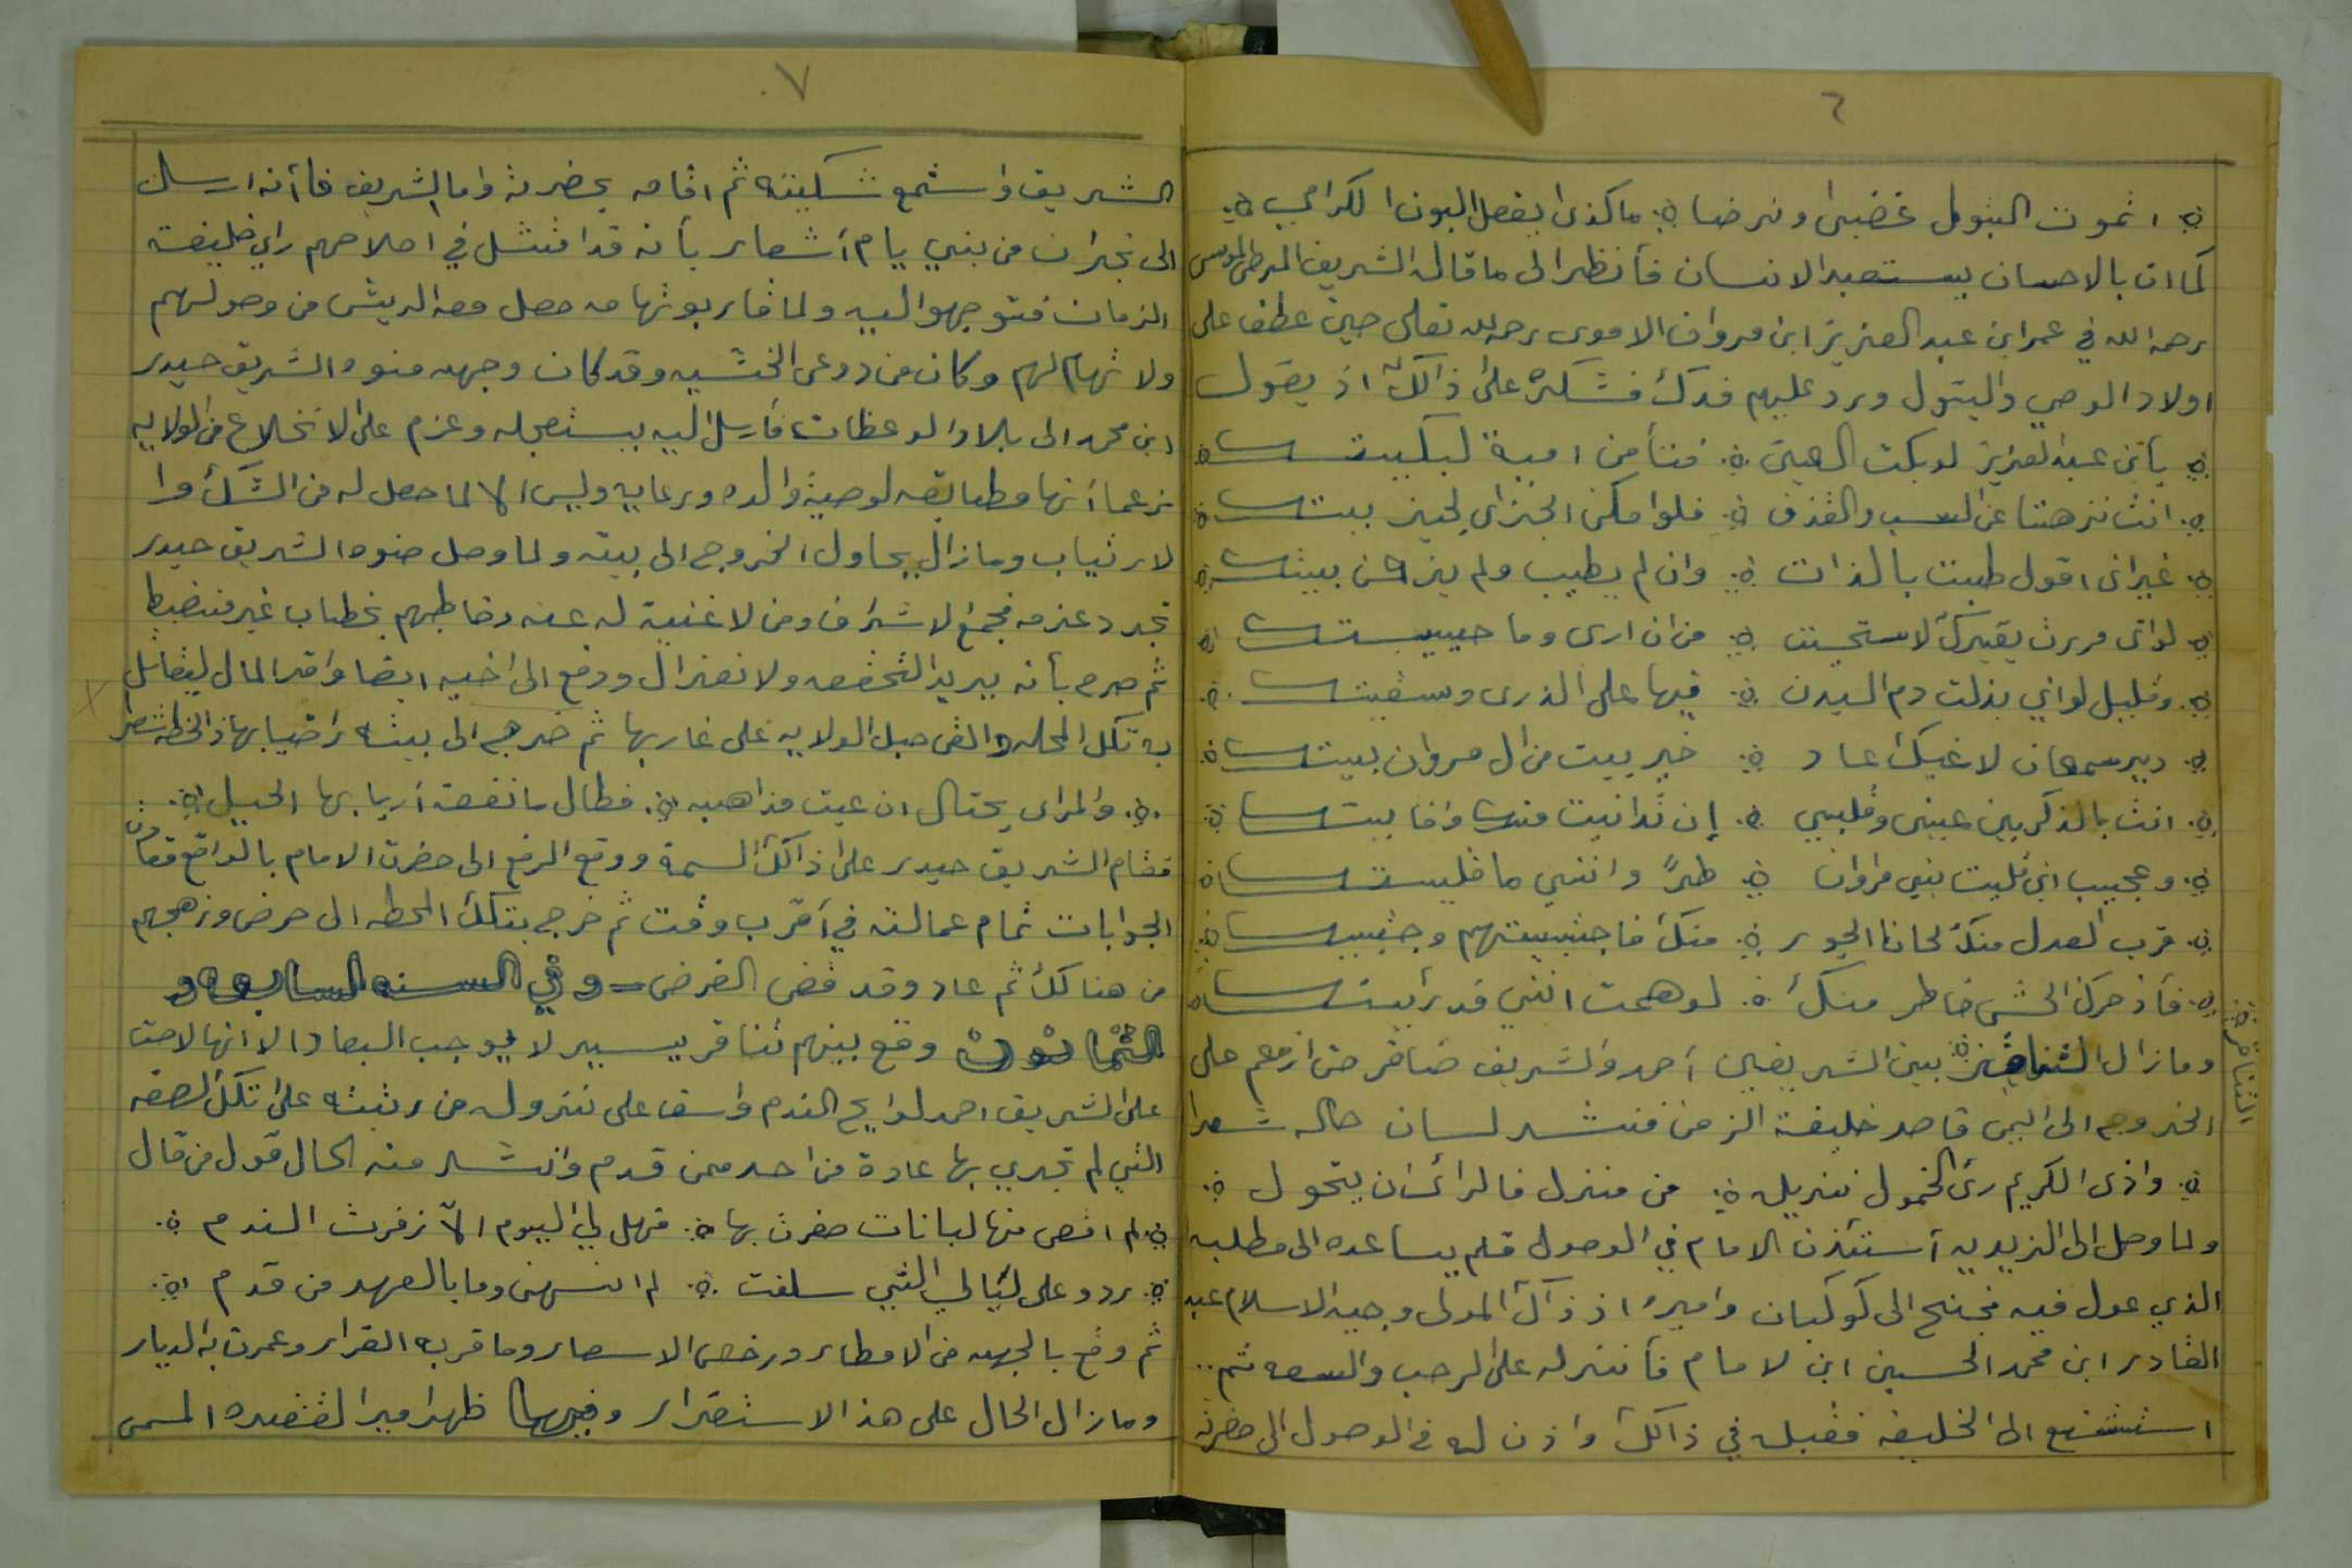 ٦
اتموت البتول غضبى ونرضا ما كذى يفعل البون الكرامي
كما ان بالاحسان يستعبد الانسان فأنظر الى ما قاله الشريف المرضى الموسى
رحمه الله في عمر ابن عبد العزيز ابن مروان الاموى رحمه الله تعلى حين عطف على
اولاد الوصي والبتول ورد عليهم فدك فشكره على ذالك اذ يقول
يأبن عبد العزيز لو بكت العين فتأ من امية لبكيتك
انت نزهتنا عن السب والقذف فلو امكن الجزاى لجزيتك
غير انى اقول طبت بالذات وان لم يطيب ولم يزك بيتك
لو انى مررت بقبرك لاستحيت من ان ارى وما حييتك
وقليل لو اني بذلت دم البدن فيها على الذرى وسقيتك
دير سمعان لا غبك عاد خير بيت من ال مروان بيتك
انت بالذكر بين عيني وقلبي إن تدانيت منك وانا بيتك
وعجيب اني قليت بني مروان طرًا وانني ما قليتك
قرب العدل منك لما نا الجور منك فاجتبيتهم وجتبيتك
فأذ حرك الحشى خاطر منك لوهمت انني قد رأيتك
ومازال التنافر بين الشريفين احمد والشريف ضافر حتى ازمع على
التنافر
الخروج الى اليمن قاصد خليفة الزمن فنشد لسان حاله شعرا
واذى الكريم رئ الخمول نزيله من منزل فالرائ ان يتحول
ولما وصل الى الزيديه أستئذن الامام في الوصول فلم يساعده الى مطلبه
الذي عول فيه فجنح الى كوكبان واميره اذ ذاك المولى وجيه الاسلام عبد
القادر ابن محمد الحسين ابن لامام فأنزله على الرحب والسعه ثم..
استشفع الى الخليفه فقبله في ذالك واذن له في الوصول الى حضرته
٧
الشريف واستمع شكيته ثم اقامه بحضرته واما الشريف فأنه ارسل
الى نجران من بني يام أشعار بأنه قد امتثل في اصلاحهم راي خليفة
الزمان فتوجهوا اليه ولما قاربو تهامه حصل معه الريش من وصولهم
ولا تهام لهم وكان من دوعى الخشيه وقد كان وجهه صنوه الشريف حيدر
ابن محمد الى بلاد الوعظات فأرسل اليه يستعجله وعزم على الانخلاع من الولايه
زعمأ أنها مطابقه لوصية والده ورعايه وليس الا لما حصل له من الشك وا
لارتياب ومازال يحاول الخروج الى بيته ولما وصل صنوه الشريف حيدر
تجرد عزمه فجمع لاشراف ومن لا غنية له عنه وخاطبهم بخطاب غير منضبط
ثم صرح بأنه يريد التخفف ولانعزال ودفع الى اخيه ايضا وافر المال ليقاتل
به تكل المحله والقى حبل الولايه على غاربها ثم خرج الى بيته راضيا بهاذ الخطه شعر
والمراى يحتال ان عيت مذاهبه فطال ما نفعة اربابها الحيل
فقام الشريف حيدر على ذالك السمة ووقع الرفع الى حضرت الامام بالواقع فعادت
الجوابات تمام عمالته في أقرب وقت ثم خرج بتكلك المحطه الى حرض وزهجهم
من هنالك ثم عاد وقد قضى الغرض وفي السنه السابعه و
الثمانون وقع بينهم تنافر يسير لا يوجب البعاد الا انها لاحت
على الشريف احمد لوايح الندم واسف على نزوله من رتبته على تكلك الصفه
التي لم تجري بها عادة من احد ممن قدم وانشد منه الحال قول من قال
لم اقص منها لبانات ضفرت بها فهل لي اليوم الا زفرت الندم
ردو على ليالي التي سلفت لم انسهن وما بالعهد من قدم
ثم وقع بالجهه من الامطار ورخص الاسعار وما قر به القرار وعمرت به الديار
ومازال الحال على هذ الاستقرار وفيها ظهر امير الفقعده المسمى